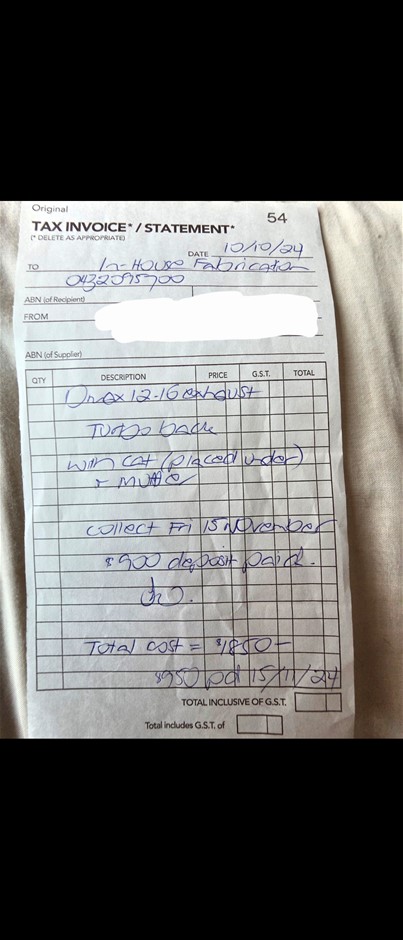 Original
54
TAX INVOICE* / STATEMENT*
(* DELETE AS APPROPRIATE)
DATE 10/10/24
TO In-House Fabrication
0432095900
ABN (of Recipient)
FROM
ABN (of Supplier)
QTY DESCRIPTION PRICE G.S.T. TOTAL
12-16 exhaust
Turbo back
with cat (placed under)
+ muffler
collect Fri 15 November
$900 deposit paid.
Total cost = $1850-
$950 pd 15/11/24
TOTAL INCLUSIVE OF G.S.T.
Total includes G.S.T. of